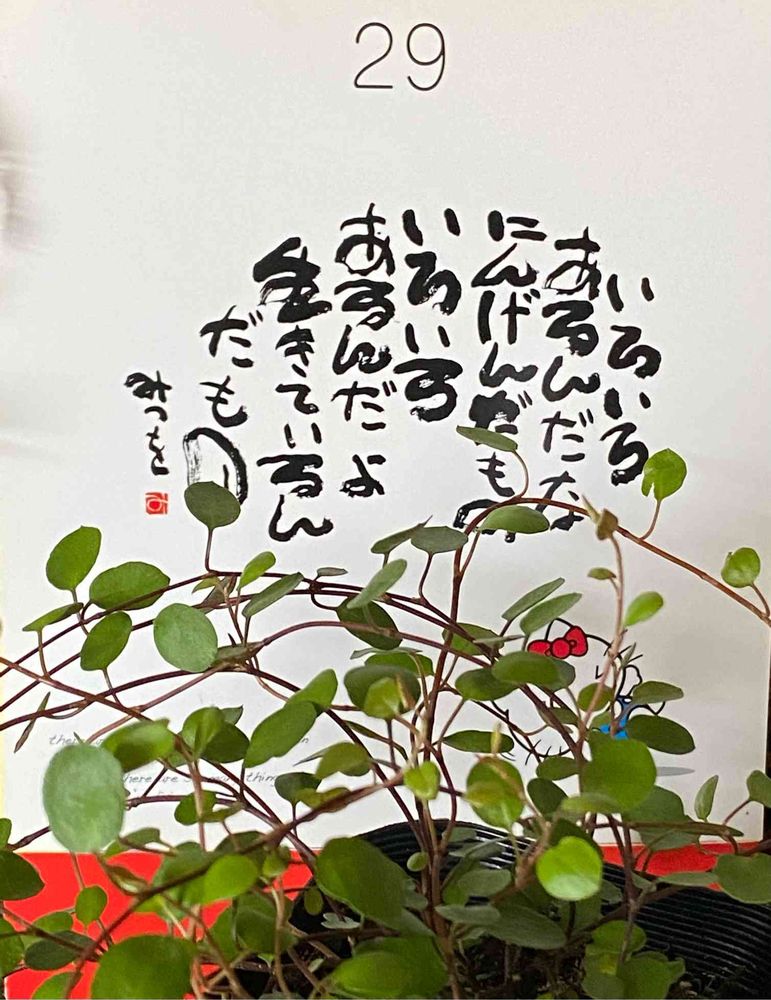 29
いろいろ
あるんだな
にんげんだもの
いろいろ
あるんだよ
生きているん
だもの
みつを
there are